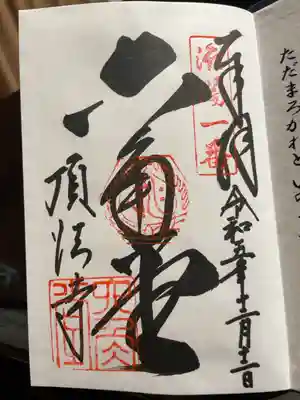 ただまろかれといの
奉拝
洛陽一番
令和五年十二月十二日
六角堂
頂法寺